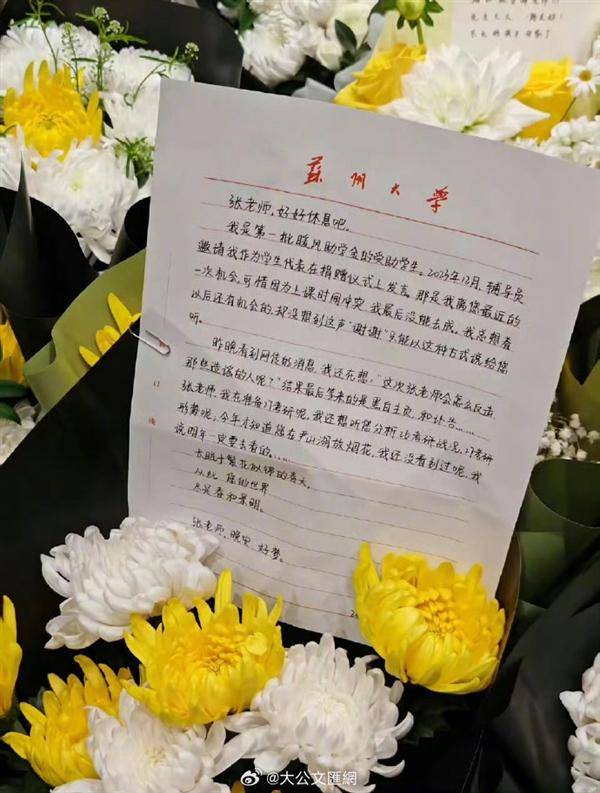 蘇州大學
张老师,好好休息吧。
我是第一批暖风助学金的受助学生。2023年12月,辅导员
邀请我作为学生代表在捐赠仪式上发言,那是我离您最近的
一次机会,可惜因为上课时间冲突,我最后没能去成。我总想着
以后还有机会的,却没想到这声“谢谢”只能以这种方式说给您
听。
昨晚看到网传的消息,我还在想:“这次张老师会怎么反击
那些造谣的人呢?”结果最后等来的是黑白主页,和讣告……
张老师,我在准备27考研呢。我还想听您分析26考研战况,27考研
形势呢,今年才知道您在尹山湖放烟花,我还没看到过呢,我
说明年一定要去看的……
长眠于繁花似锦的春天。
从此,您的世界
尽是春和景明。
张老师,晚安,好梦。
@大公文匯網